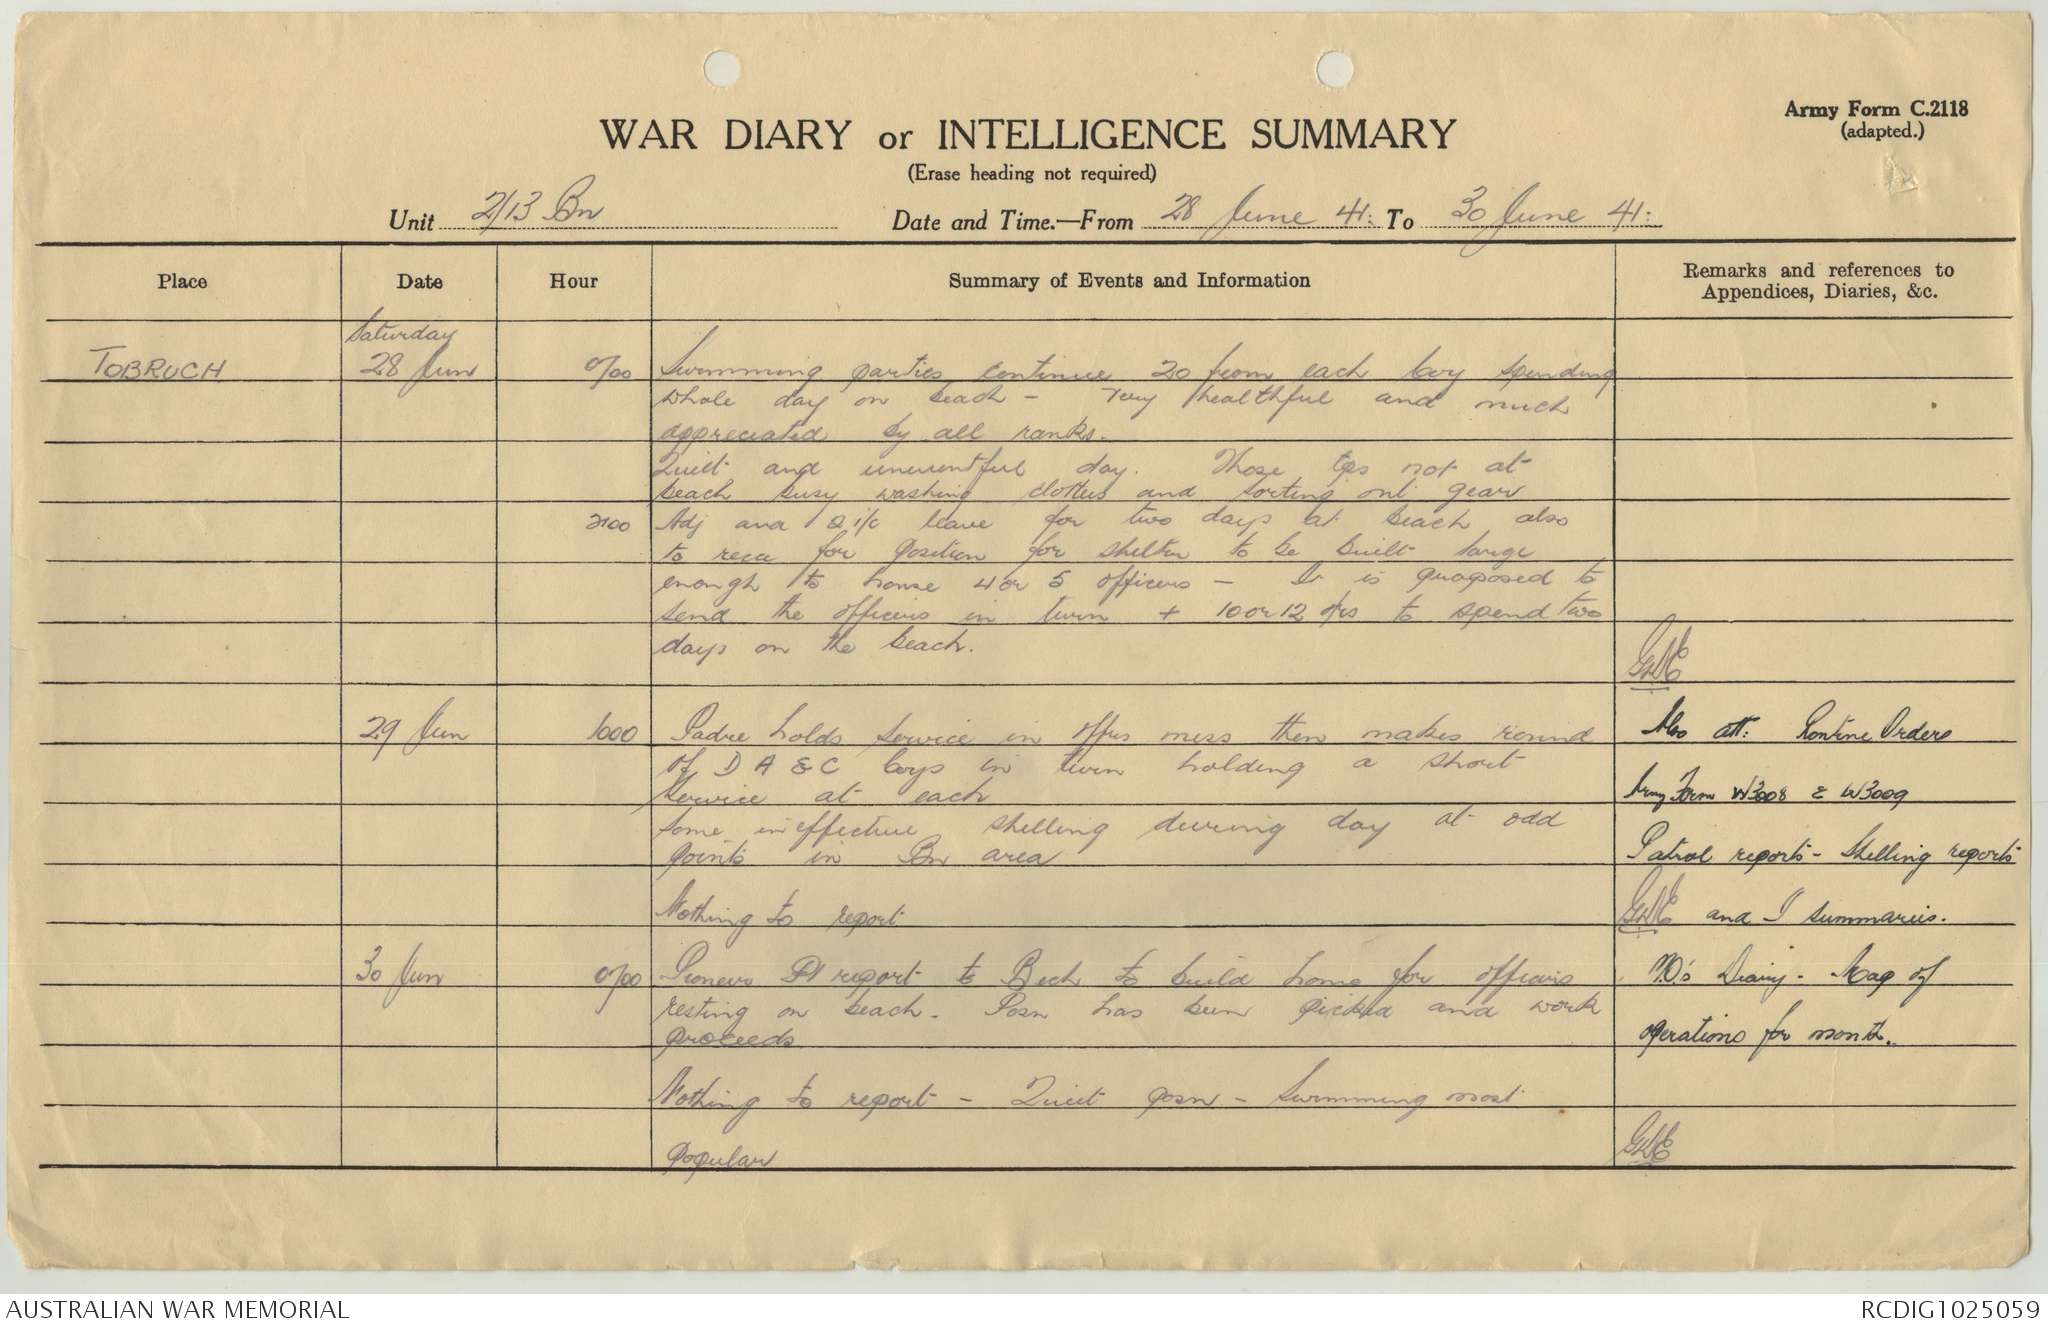 Army Form C.2118
(adapted.)
WAR DIARY or INTELLIGENCE SUMMARY
(Erase heading not required)
Unit 2/13 Bn Date and Time.—From 28 June 41: To 30 June 41:
Place Date Hour Summary of Events and Information Remarks and references to
Appendices, Diaries, &c.
Saturday
TOBRUCH 28 Jun 0700 Swimming parties continue 20 from each Coy spending
whole day on beach - Very healthful and much
appreciated by all ranks.
Quiet and uneventful day. Those tps not at
beach busy washing clothes and sorting out gear
2100 Adj and 2 i/c leave for two days at beach also
to recce for position for shelter to be built large
enough to house 4 or 5 officers - It is proposed to
send the officers in turn + 10 or 12 ors to spend two
days on the beach.
29 Jun 1000 Padre holds service in offrs mess then makes round Also att: Routine Orders
of D A & C Coys in turn holding a short
service at each Army Form W3008 & W3009
Some ineffective shelling during day at odd
points in Bn area Patrol reports - Shelling reports
Nothing to report and I summaries.
30 Jun 0700 Pioneers Pl report to Bech to build home for officers Diary - Map of
resting on beach - Posn has been picked and work
proceeds operations for month.
Nothing to report - Quiet posn - Swimming most
popular
AUSTRALIAN WAR MEMORIAL RCDIG1025059